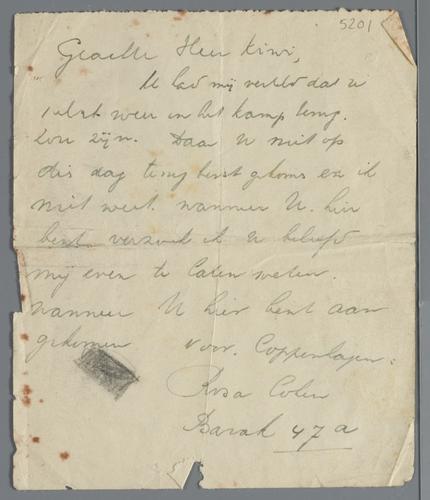 5201
Geachte Heer Kiwi,
U had mij verteld dat u
weer in het kamp terug
Zou zijn. Daar U niet op
dis dag terug bent gekoms en ik
niet weet wanneer U hier
bent verzoek ik u beleefd
mij even te laten weten.
wanneer U hier bent aan
gekomen voor. Coppenhagen:
Rosa Colen
Barak 47a